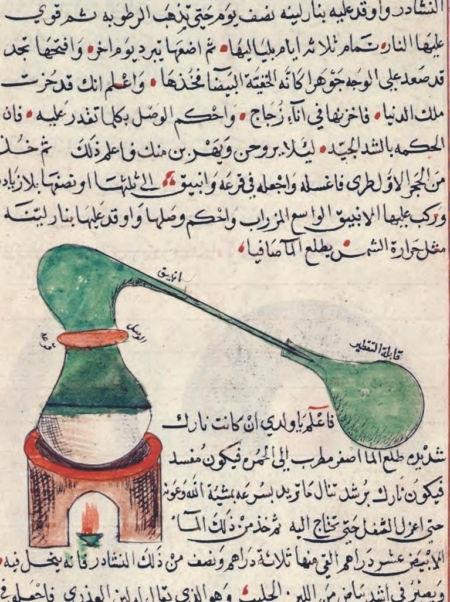 النشادر واوقد عليه بنار لينه نصف يوم حتى تذهب الرطوبه ثم قوي
عليها النار تمام ثلاثه ايام بلياليها ثم اضعها تبرد يوم اخر وافتحها تجد
قد صعد على الوجه جوهرا كانه الفضة البيضا فخذها واعلم انك قد حزت
ملك الدنيا فاخزنها في اناء زجاج واحكم الوصل بكلما تقدر عليه فان
الحكمه بالشد الجيد ليلا يروحن ويهربن منك فاعلم ذلك ثم خذ
من الحجر الاول طرى فاغسله واجعله في قرعه وانبيق الى ثلثها او نصفها بلا زياده
وركب عليها الانبيق الواسع المزراب واحكم وصلها واوقد عليها بنار لينه
مثل حرارة الشمس يطلع الما صافيا
انبيق
الوصل
قرعه
قابلة التقطير
فاعلم يا ولدي ان كانت نارك
شديده طلع الما اصفر مطرب الى الحمره فيكون مفسد
فيكون نارك برشد تنال ما تريد بسرعه بمشية الله وعونه
حتى اعزل الثفل حتى تحتاج اليه ثم خذ من ذلك الما
الابيض عشر دراهم الق منها ثلاثة دراهم ونصف من ذلك النشادر فانه ينحل فيه
ويصير في اشد بياض من اللبن الحليب وهو الذي يقال له لبن العذرى فاجعله في